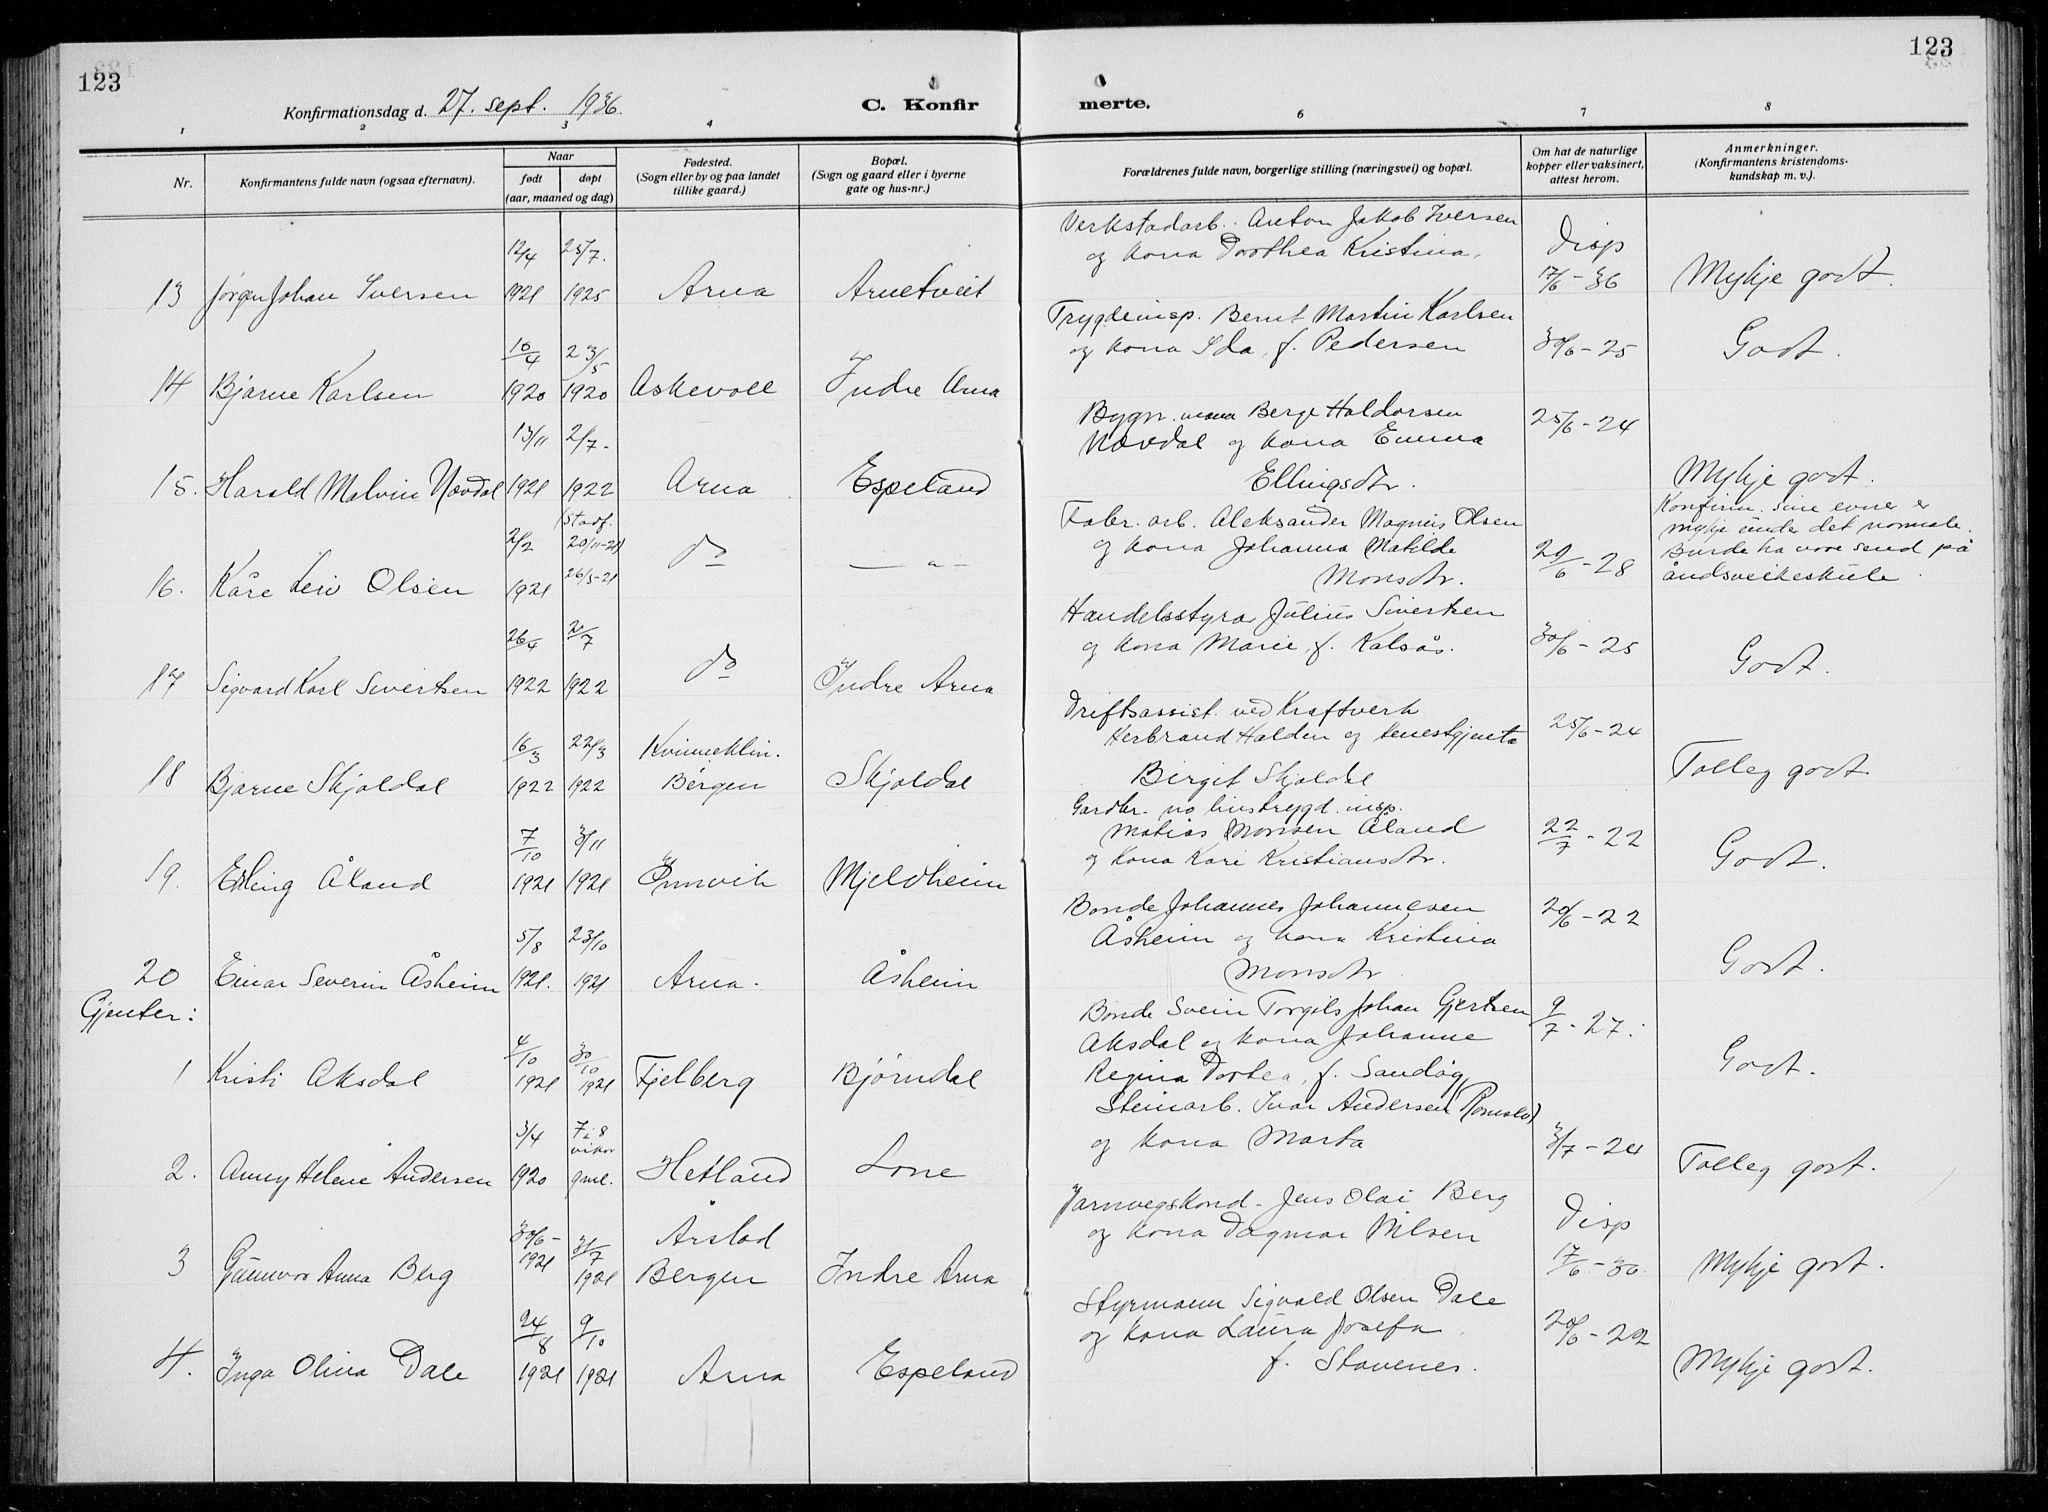 123
123
Konfirmationsdag d. 27. sept. 1936.
C. Konfir
merte.
1 2 3 4 6 7 8
Nr.
Konfirmantens fulde navn (ogsaa efternavn).
Naar
født
døpt
(aar, maaned og dag)
Fødested.
(Sogn eller by og paa landet
tillike gaard.)
Bopæl.
(Sogn og gaard eller i byerne
gate og hus-nr.)
Forældrenes fulde navn, borgerlige stilling (næringsvei) og bopæl.
Om hat de naturlige
kopper eller vaksinert,
attest herom.
Anmerkninger.
(Konfirmantens kristendoms-
kundskap m. v.).
13 Jørgen Johan Iversen 12/4 1921 25/7. 1925 Arna Arnetveit
Verkstadarb. Anton Jakob Iversen
og kona Dorthea Kristina.
Disp
17/6-36
Mykje godt.
14 Bjarne Karlsen 16/4 1920 23/5 1920 Askevoll Indre Arna
Trygdeinsp. Bernt Martin Karlsen
og kona Ida, f. Pedersen
30/6-25
Godt.
15. Harald Malvin Novdal 13/11 1921 2/7. 1922 Arna Espeland
Bygn. mann Berge Haldorsen
Novdal og kona Emma
Ellingsdtr.
25/6-24
Mykje godt.
16. Kåre Leiv Olsen 2/2 1921 (stadf. 20/11-21) 26/3-21 do — " —
Fabr. arb. Aleksander Magnus Olsen
og kona Johanna Matilde
Monsdtr.
29/6-28
Konfirm. sine evner er
mykje under det normale.
Burde ha vore send på
åndsveikeskule.
17 Sigvard Karl Sivertsen 26/4 1922 2/7 1922 do Indre Arna
Handelsstyrar Julius Sivertsen
og kona Marie, f. Kalsås.
30/6-25
Godt.
18 Bjarne Skjoldal 16/3 1922 22/3 1922 Kvinneklin. Bergen Skjoldal
Driftsassist. ved Kraftverk
Herbrand Halden og tenestgjenta
Birgit Skjoldal
25/6-24
Tolleg godt
19. Erling Åland 7/10 1921 3/11 1921 Innvik Mjeldheim
Gardbr. no livstrygd. insp.
Matias Monsen Åland
og kona Kari Kristiansdtr.
22/7-22
Godt.
20 Einar Severin Åsheim 5/8 1921. 23/10 1921 Arna. Åsheim
Bonde Johannes Johannesen
Åsheim og kona Kristina
Monsdtr
20/6-22
Godt.
Gjenter:
1 Kristi Aksdal 4/10 1921 30/10 1921 Fjelberg Bjørndal
Bonde Svein Torgils Johan Gjertsen
Aksdal og kona Johanne
Regina Dortea, f. Sandøy
9/7-27.
Godt.
2. Anny Helene Andersen 3/4 1920 7 i 8 vikor gml. Hetland Lone
Steinarb. Ivar Andersen (Romslo)
og kona Marta
3/7-24
Tolleg godt.
3 Gunnvor Anna Berg 30/6-1921 31/7 1921 Årstad Bergen Indre Arna
Jarnvegskond. Jens Olai Berg
og kona Dagmar Nilsen
Disp
17/6-36.
Mykje godt.
4. Inga Olina Dale 24/8 1921 9/10 1921 Arna Espeland
Styrmann Sigvald Olsen Dale
og kona Laura Josefa
f. Stavenes.
20/6-22
Mykje godt.